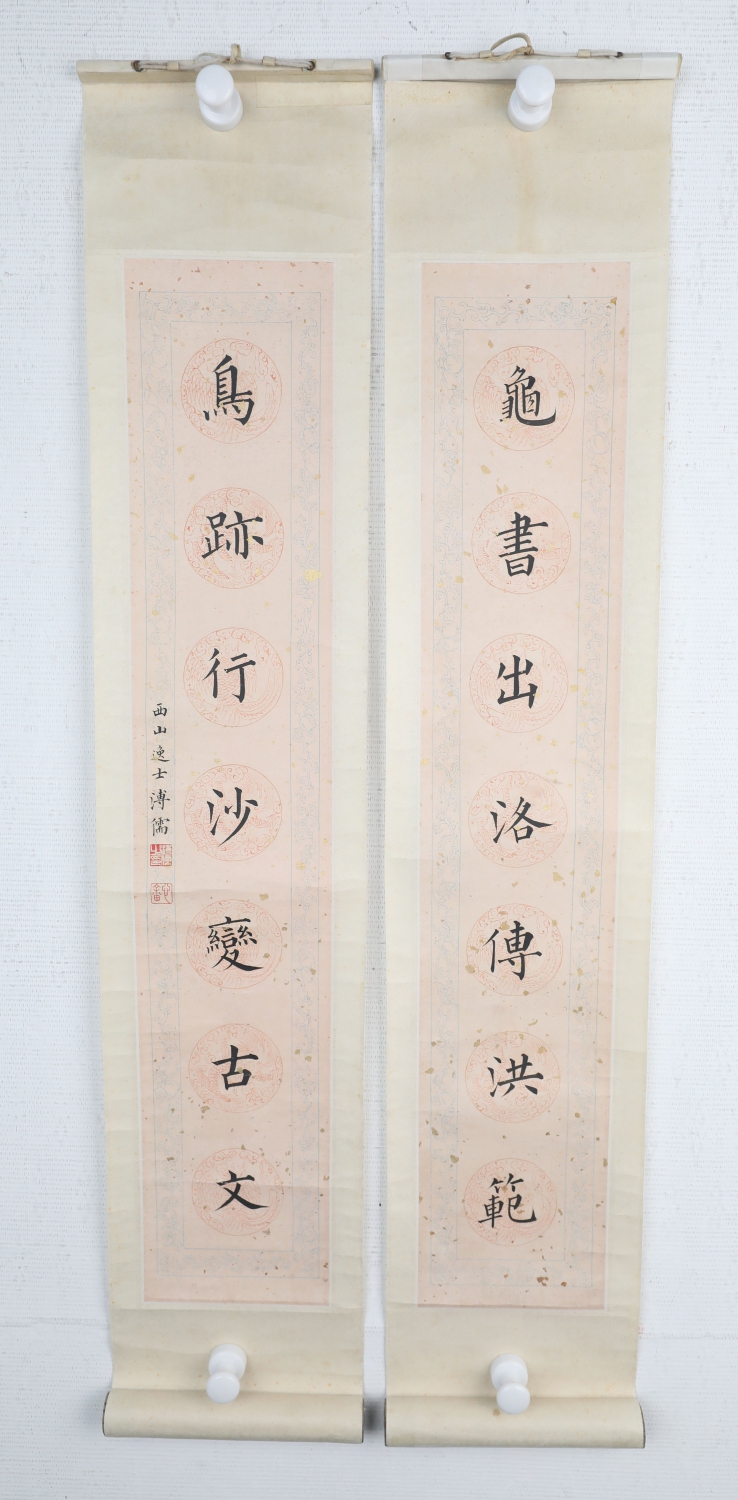 龜書出洛傳洪範
鳥跡行沙變古文
西山逸士溥儒